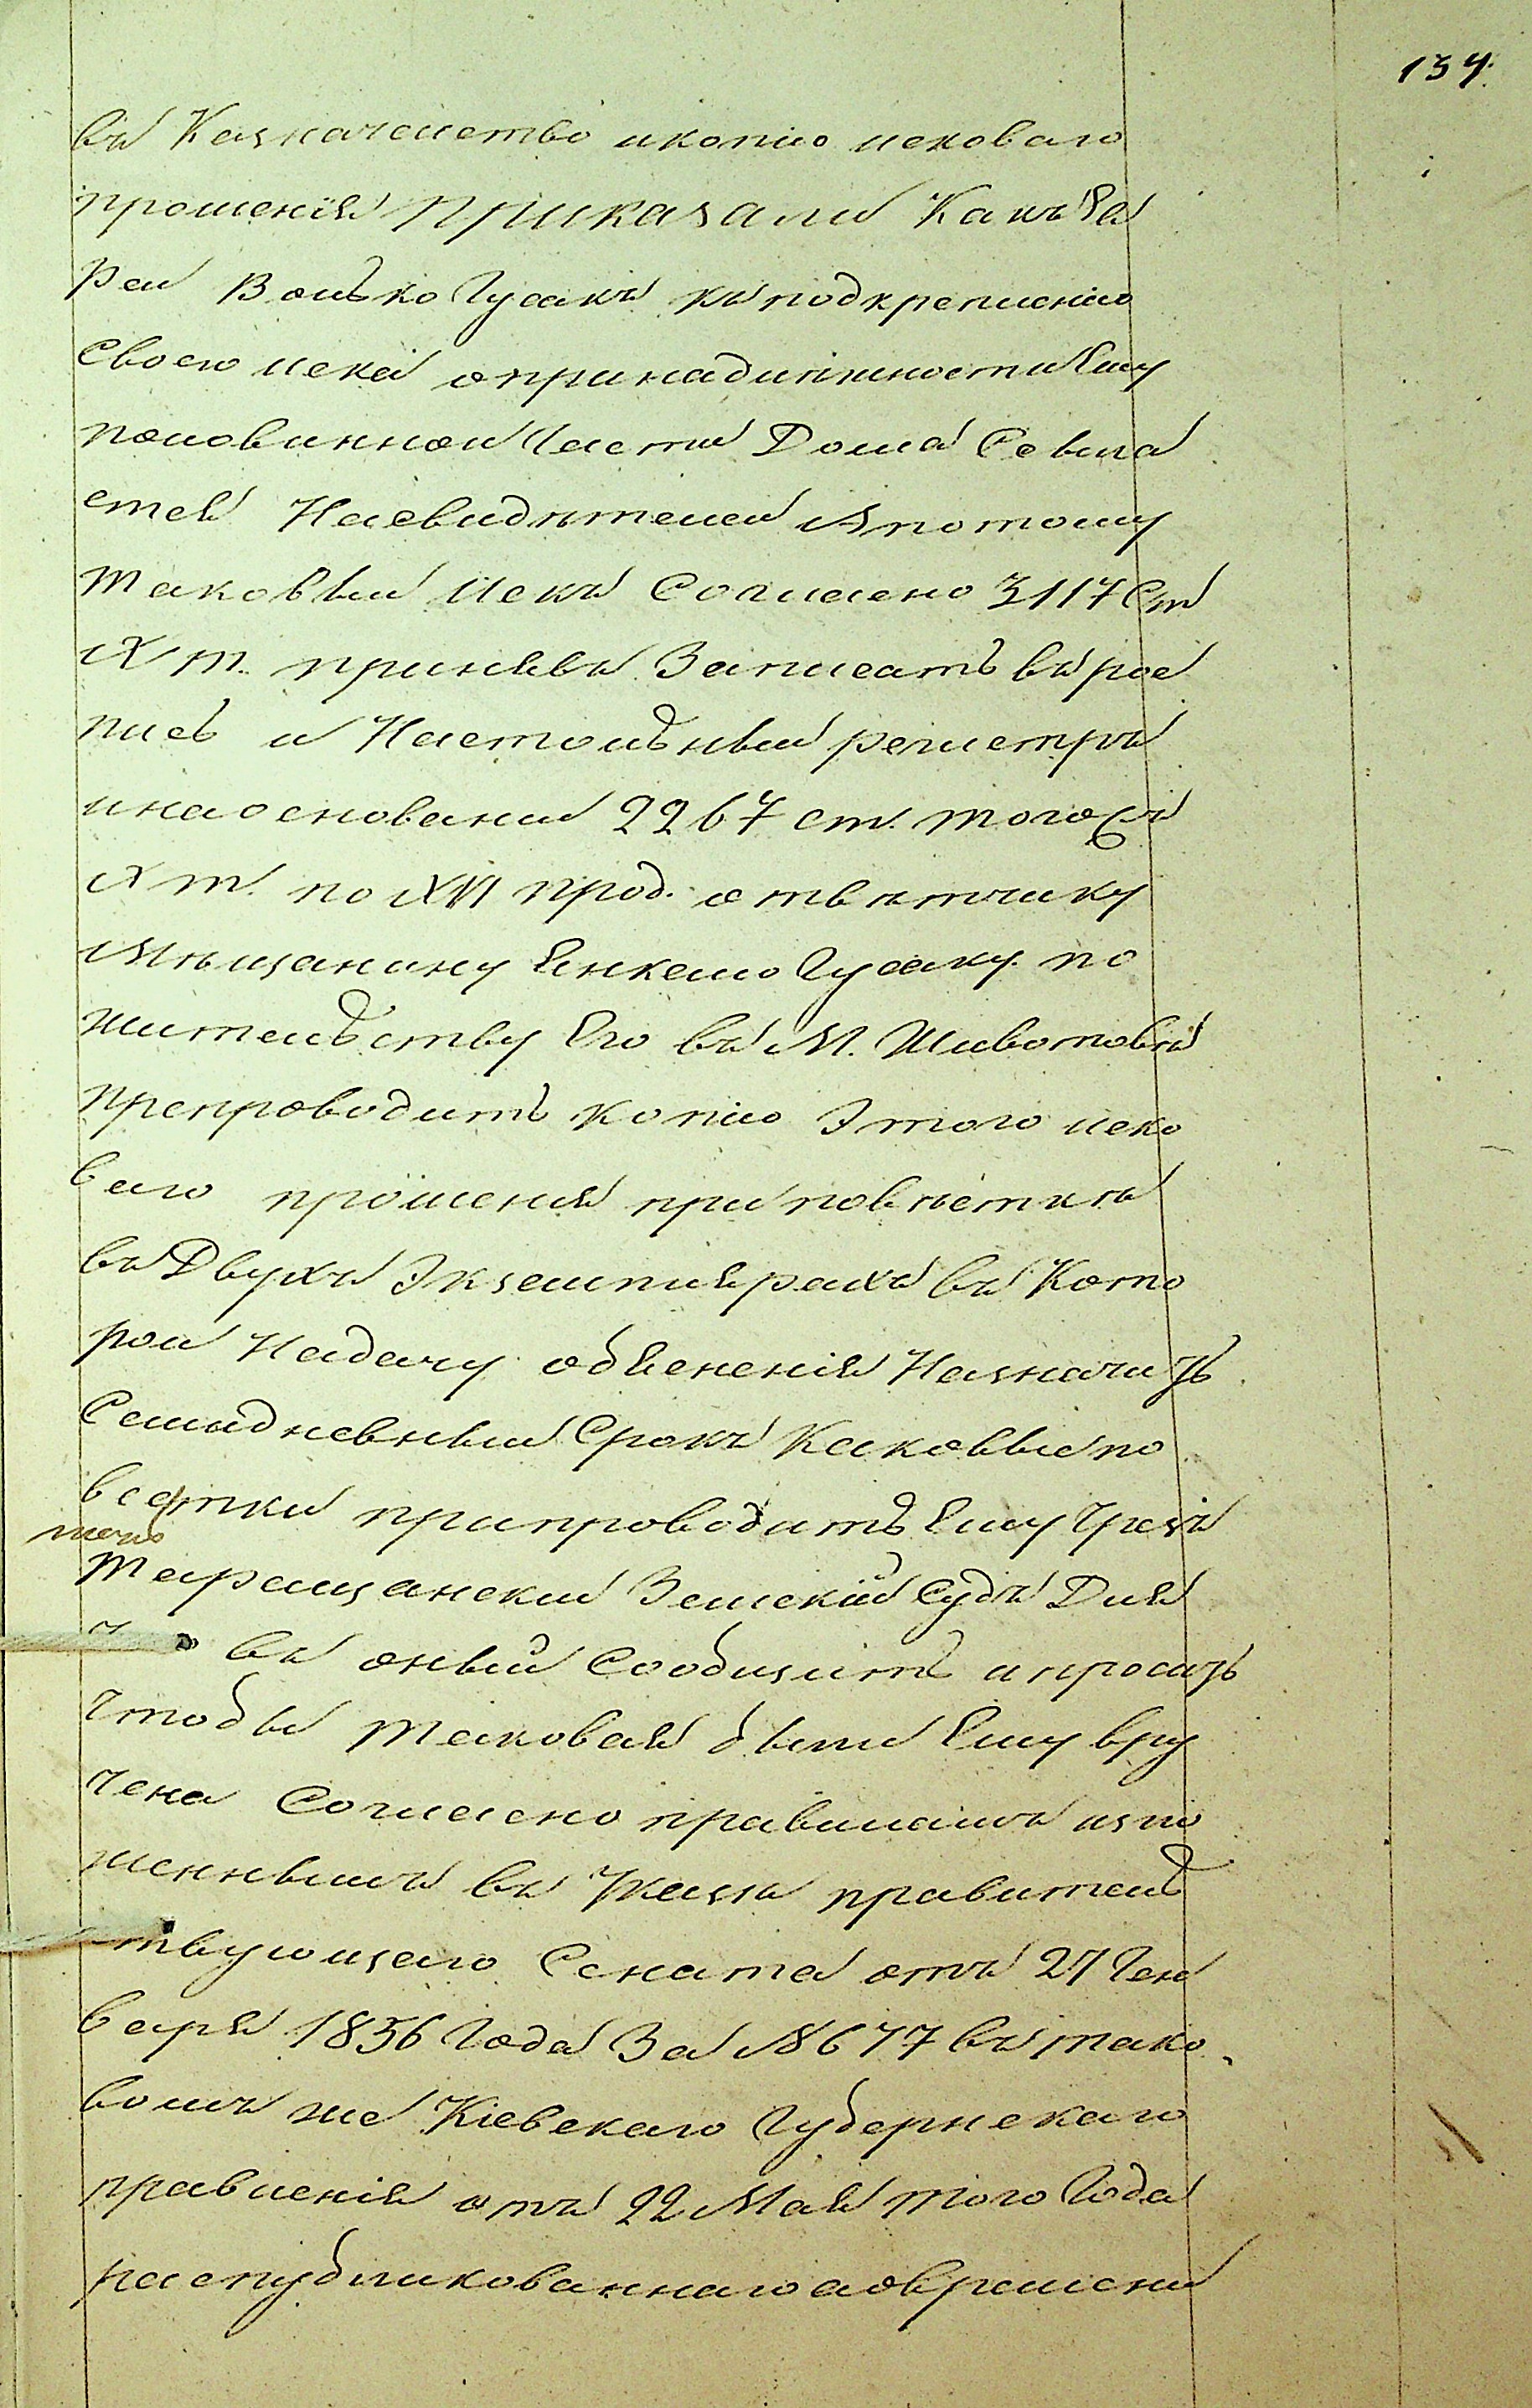 134.
въ Казначейство икопію исковаго
прошенія Приказали Какъ Ев
реи Волько Гусакъ къ подкрепленію
Своего иска опринадлѣжности Ему
половинной Части Дома Ссыла
ется На свидѣтелей А потому
таковый Искъ Согласно 3117 Ст
X т. принявъ Записать въ рос
пись и Настольный регистръ
ина основании 2267 ст. того жъ
X т. по XVI прод. ответчику
Мѣщанину Янкелю Гусаку по
жительству Его въ М. Животовѣ
препроводить Копію Этого иско
ваго прошенія при повѣсткѣ
въ Двухъ Экземплярахъ въ Кото
рой На дачу объясненія Назначить
Семидневный Срокъ Каковые по
вестки припроводить Ему Чрезъ
Таращанский Земский Судъ Для
чего въ оный Сообщить и просить
Чтобы таковая были Ему вру
чена Согласно правиламъ изло
женнымъ въ Указѣ правитель
ствующаго Сената отъ 27 Ген
варя 1856 Года За № 677 въ тако
вомъ же Кіевскаго Губернскаго
правленія отъ 22 Мая того Года
распубликованнаго а овремени